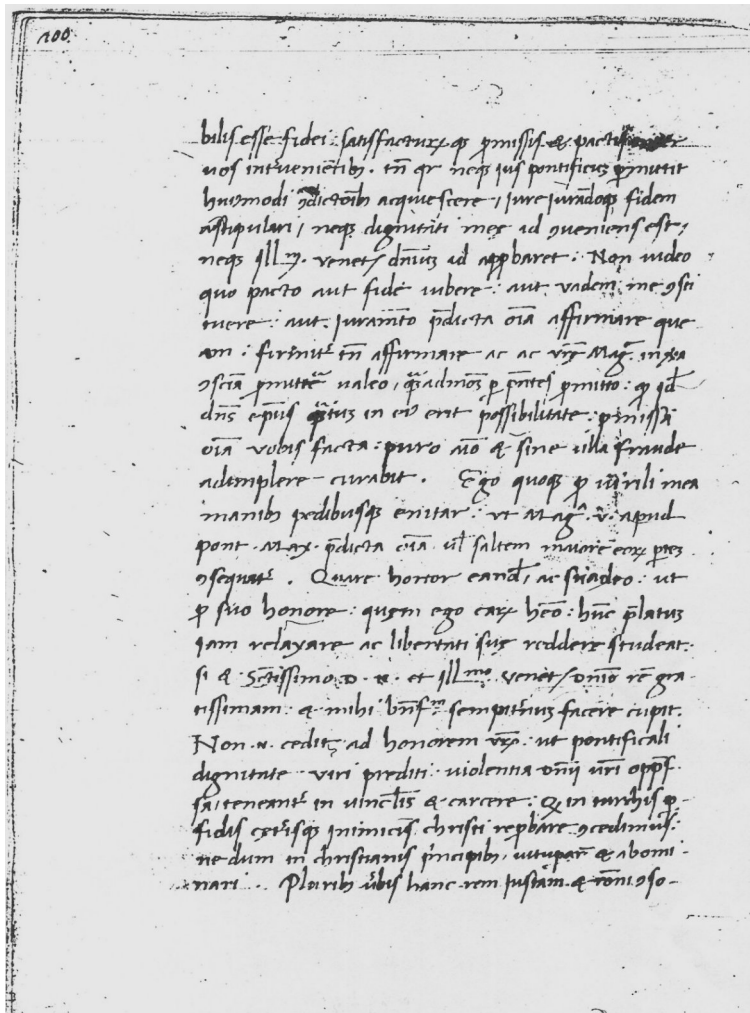 100
bilis esse fidei: satisfacturꝝ qꝫ ꝓmissis & pactis
uos intᵉruenientibꝫ. tn̄ qr neqꝫ ius pontificiuꝫ ꝑmittit
huiꝰmodi ꝯdictōibꝫ acquiescere, iure iurādoqꝫ fidem
astipulari, neqꝫ dignitati meę id ꝯueniens est,
neqꝫ Illᵐ. Venetꝝ dn̄iuꝫ id apꝓbaret: Non uideo
quo pacto aut fidē iubere: aut uadem me ꝯsti
tuere: aut Iuramēto p̄dicta oīa affirmare que
am: firmitᵉr tn̄ affirmare ac ac Vrę Magᶜᵉ in
ꝯsciā ꝓmittere ualeo, quēadmodū ꝑ pn̄tes ꝓmitto: qꝫ id
dn̄s ep̄us quātuꝫ in eo erit possibilitate: ꝓmissa
oīa uobis facta: puro aīo & sine ulla fraude
adimplere curabit. Ego quoqꝫ ꝓ uirili mea
manibꝫ pedibusqꝫ enitar: ut Magᶜᵃ. v. apud
pont. Max. p̄dicta oīa ul̄ saltem maiorē eorꝝ ꝑtē
ꝯsequatᵉ. Quare hortor eandē, ac suadeo: ut
ꝓ suo honore: quem ego carꝝ hēo: hūc p̄latuꝫ
iam relaxare ac libertati suę reddere studeat.
si & Sctissimo. D. N. et Illᵐᵒ. Venetꝝ dn̄io rē gra
tissimam: & mihi bn̄fᵐ sempitᵉrnuꝫ facere cupit.
Non .n. cedit ad honorem vrꝫ: ut pontificali
dignitate uiri prediti: uiolentia dn̄ii uri opp̄s
sa, teneantᵉ in uinclis & carcere: Qꝫ in turchis ꝑ
fidis cęterisqꝫ inimicis christi reꝓbare ꝯcedimus:
ne dum in christianis principibꝫ, uitupar̄ & abomi
nari. Pluribꝫ ūbis hanc rem Iustam & rōni ꝯso-